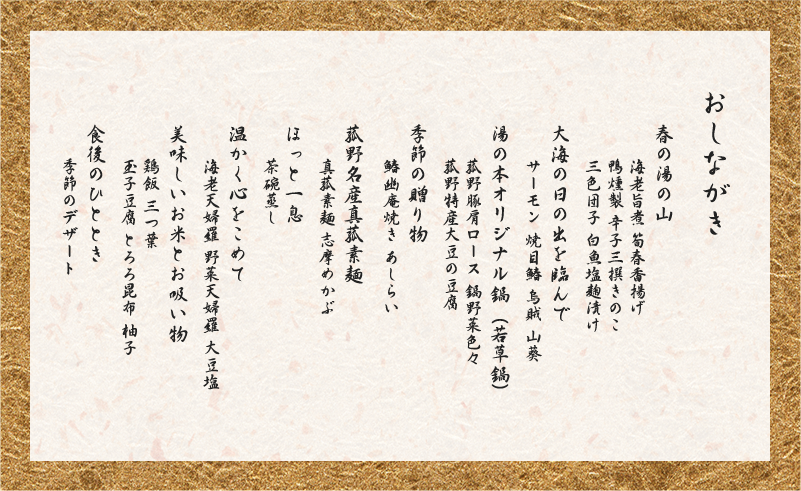 おしながき
春の湯の山
海老旨煮 筍春香揚げ
鴨燻製 辛子三撰きのこ
三色団子 白魚塩麹漬け
大海の日の出を臨んで
サーモン 焼目鰆 烏賊 山葵
湯の本オリジナル鍋（若草鍋）
菰野豚肩ロース 鍋野菜色々
菰野特産大豆の豆腐
季節の贈り物
鰆幽庵焼き あしらい
菰野名産真菰素麺
真菰素麺 志摩めかぶ
ほっと一息
茶碗蒸し
温かく心をこめて
海老天婦羅 野菜天婦羅 大豆塩
美味しいお米とお吸い物
鶏飯 三つ葉
玉子豆腐 とろろ昆布 柚子
食後のひととき
季節のデザート